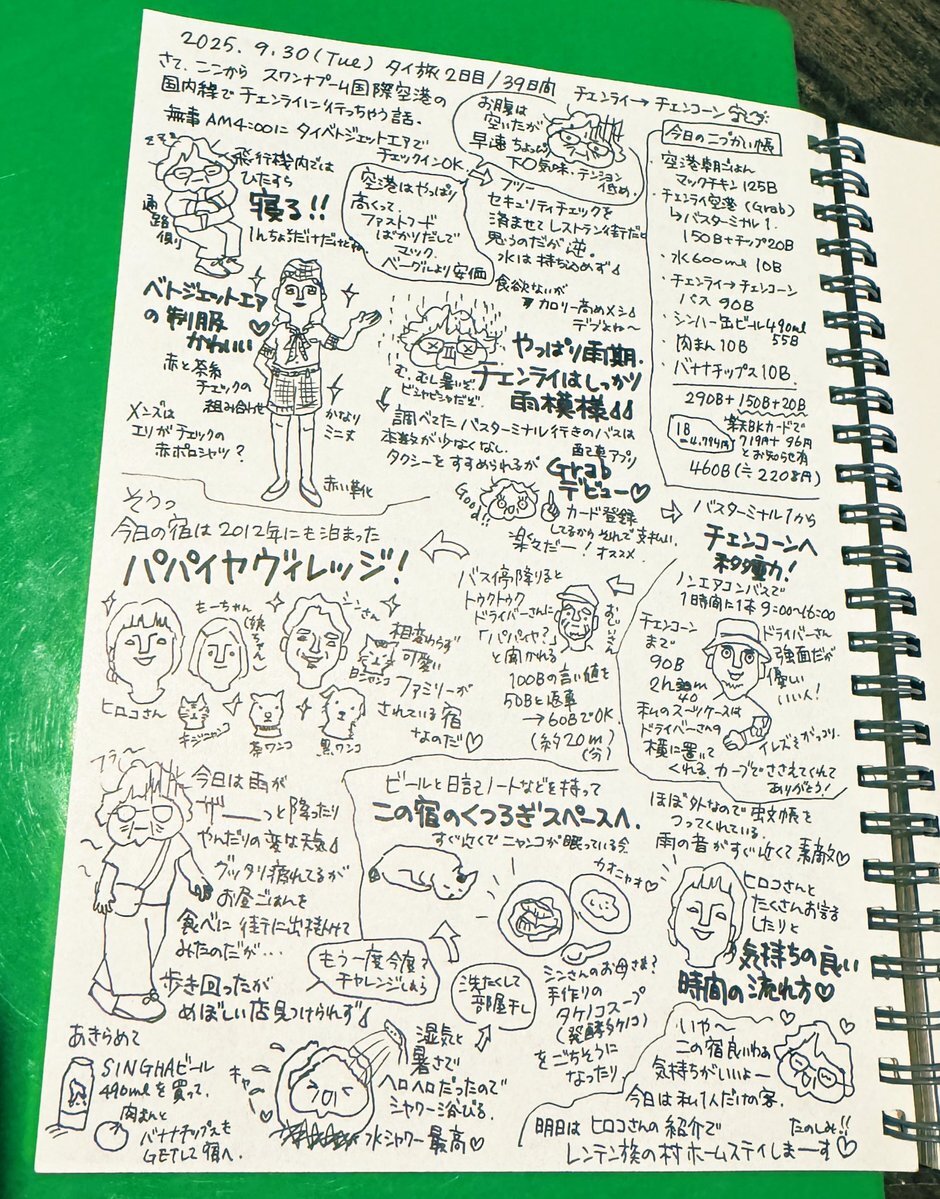 2025. 9.30 (Tue) タイ旅 2日目/39日間
チェンライ→チェンコーン
さて、ここから スワンナプーム国際空港の
国内線で チェンライに行っちゃう話。
無事 AM4:00に タイベトジェットエアで
チェックインOK
飛行機内では
ひたすら
寝る!!
通路側り
1んちょうだけだけどね
お腹は
空いたが
早速 ちょぴり
下○気味、テンション
低め。
空港はやっぱり
高くって、
ファストフード
ばかりだしで
マック。
ベーグルより安価
フツー
セキュリティチェックを
済ませてレストラン街だと
思うのだが 逆。
水は持ち込めず
食欲ないが
カロリー高めメシ
デブよね〜
ベトジェットエア
の制服
かわいい
赤と茶系
チェックの
組み合わせ
メンズは
エリがチェックの
赤ポロシャツ?
かなり
ミニ丈
赤い靴
む、むし暑いぞ
ビシャビシャだぞ
やっぱり雨期。
チェンライはしっかり
雨模様
調べてた バスターミナル行きのバスは
本数が少なくなし、
タクシーをすすめられるが
配車アプリ
Grab
デビュー♡
Good!!
カード登録
してるから それで支払い
楽々だー! オススメ
今日のこづかい帳
・空港朝ごはん
マックチキン 125B
・チェンライ空港 (Grab)
↳バスターミナル1.
150B+チップ20B
・水 600ml 10B
・チェンライ→チェンコーン
バス 90B
・シンハー缶ビール490ml
55B
・肉まん 10B
・バナナチップス 10B.
290B+150B+20B
1B
=4.794円
楽天BKカードで
719円+96円
とお知らせ有
460B(≒2208円)
バスターミナル1から
チェンコーンへ
移動!
ノンエアコンバスで
1時間に1本 9:00〜16:00
チェンコーン
まで
90B
2h40m
ドライバーさん
強面だが
優しい
いい人!
私のスーツケースは
ドライバーさんの
横に置いて
くれる。カーブでささえてくれて
ありがとう!
イレズミがっつり。
バス停降りると
トゥクトゥク
ドライバーさんに
「パパイヤ?」
と聞かれる
おじいさん
100Bの言い値を
50Bと返事
→60BでOK.
(約20m)
(分)
そうっ
今日の宿は2012年にも泊まった
パパイヤヴィレッジ!
ヒロコさん
もーちゃん
(娘ちゃん)
シンさん
キジニャンコ
茶ワンコ
黒ワンコ
白ニャンコ
相変わらず
可愛い
ファミリーが
されている宿
なのだ♡
フラ〜
今日は雨が
ザーーっと降ったり
やんだりの変な天気
グッタリ疲れてるが
お昼ごはんを
食べに 街に出掛けて
みたのだが…
歩き回ったが
めぼしい店見つけられず
あきらめて
SINGHAビール
490mlを買って、
肉まんと
バナナチップスも
GETして宿へ。
ビールと日記ノートなどを持って
この宿のくつろぎスペースへ。
すぐ近くでニャンコが眠っている
カオニャオ♡
もう一度今度
チャレンジしよう
洗たくして
部屋干し
湿気と
暑さで
ヘロヘロだったので
シャワー浴びる。
キャー
水シャワー最高♡
シンさんのお母さま?
手作りの
タケノコスープ
(発酵タケノコ)
をごちそうに
なったり
ほぼ外なので 虫文帳を
つってくれている。
雨の音がすぐ近くて 素敵♡
ヒロコさんと
たくさんお話
したりと
気持ちの良い
時間の流れ方♡
いや〜
この宿良いわぁ
気持ちがいいよー
今日は私1人だけの客。
たのしみ!!
明日は ヒロコさんの紹介で
レンテン族の村ホームステイしまーす♡